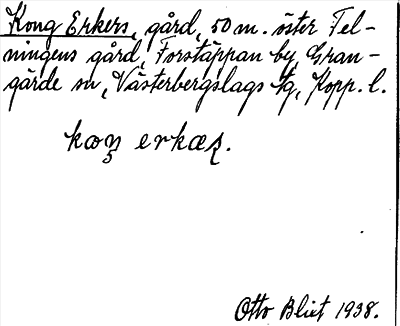 Kong Erkers, gård, 50 m. öster Tel-
ningens gård, Forstäppan by, Gran-
gärde sn, Västerbergslags tg, Kopp. l.
erkæʀ.
Otto Bliet 1938.